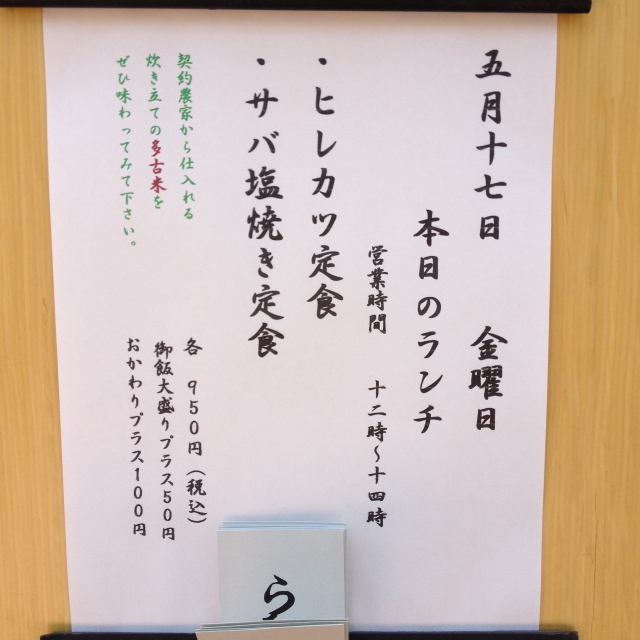 五月十七日　金曜日
本日のランチ
営業時間　十二時～十四時
・ヒレカツ定食
・サバ塩焼き定食
契約農家から仕入れる
炊き立ての多古米を
ぜひ味わってみて下さい。
各　９５０円（税込）
御飯大盛りプラス５０円
おかわりプラス１００円
ら